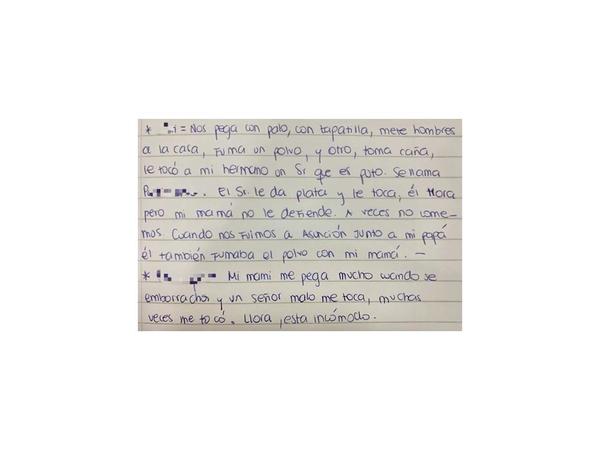 * i = Nos pega con palo, con tapatilla, mete hombres
a la casa, Fuma un polvo, y otro, toma caña,
le tocó a mi hermano un Sr que es puto. Se llama
P. El Sr. le da plata y le toca, él llora
pero mi mamá no le defiende. A veces no come-
mos. Cuando nos fuimos a Asunción junto a mi papá
él también fumaba el polvo con mi mamá. -
* Mi mami me pega mucho cuando se
emborracha y un señor malo me toca, muchas
veces me tocó. Llora, esta incómodo.